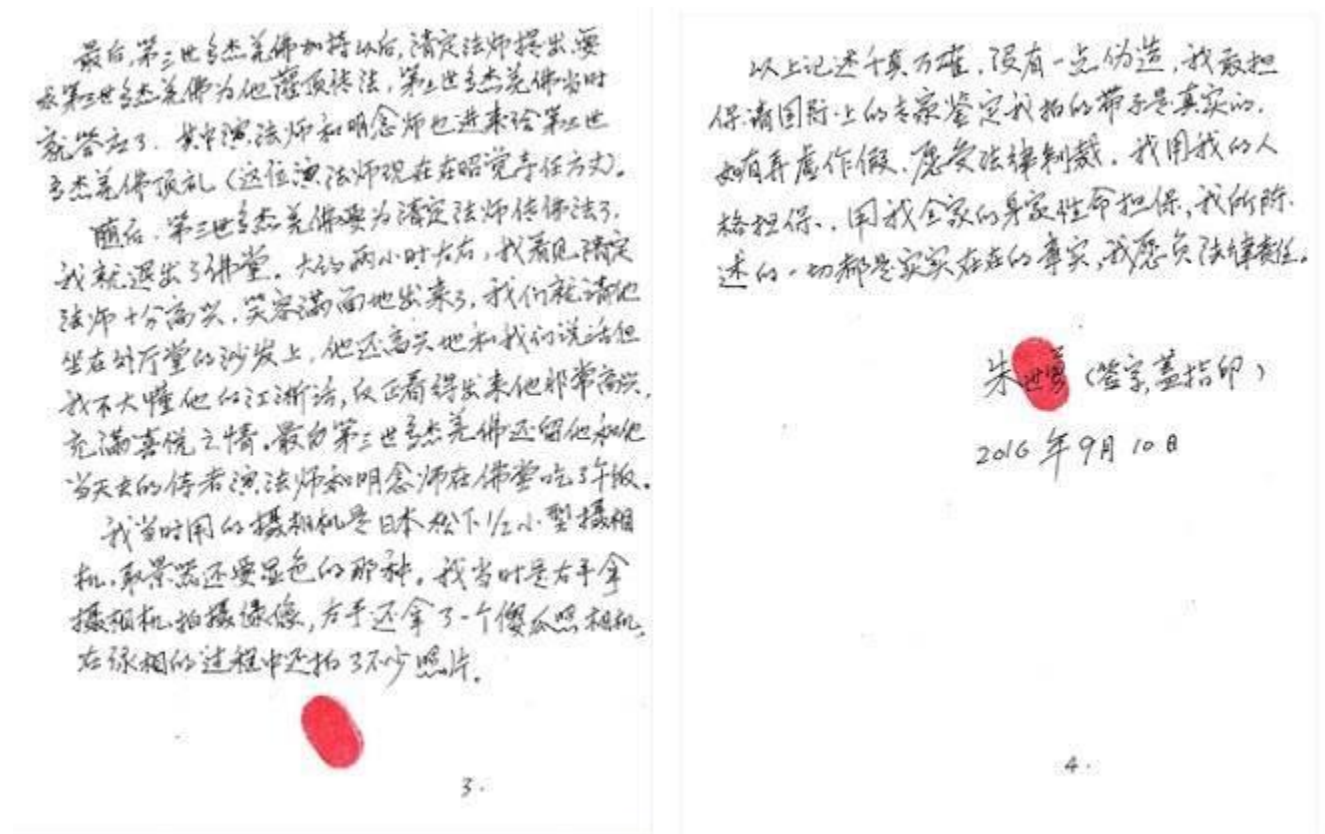 最后,第三世多杰羌佛加持以后,清定法师提出,要
求第三世多杰羌佛为他灌顶传法,第三世多杰羌佛当时
就答应了。其中演法师和明念师也进来给第三世
多杰羌佛顶礼(这位演法师现在在昭觉寺任方丈)。
随后,第三世多杰羌佛要为清定法师传佛法了,
我就退出了佛堂。大约两小时左右,我看见清定
法师十分高兴,笑容满面地出来了,我们就请他
坐在外厅堂的沙发上,他还高兴地和我们说话但
我不大懂他的江浙话,反正看得出来他非常高兴,
充满喜悦之情。最后第三世多杰羌佛还留他和他
当天去的侍者演法师和明念师在佛堂吃了午饭。
我当时用的摄相机是日本松下1/2小型摄相
机,取景器还要显色的那种。我当时是右手拿
摄相机拍摄录像,左手还拿了一个傻瓜照相机,
在录相的过程中还拍了不少照片。
3.
以上记述千真万确,没有一点伪造,我敢担
保请国际上的专家鉴定我拍的带子是真实的,
如有弄虚作假,愿受法律制裁。我用我的人
格担保,用我全家的身家性命担保,我所陈
述的一切都是实实在在的事实,我愿负法律责任。
朱世勇(签字,盖指印)
2016年9月10日
4.